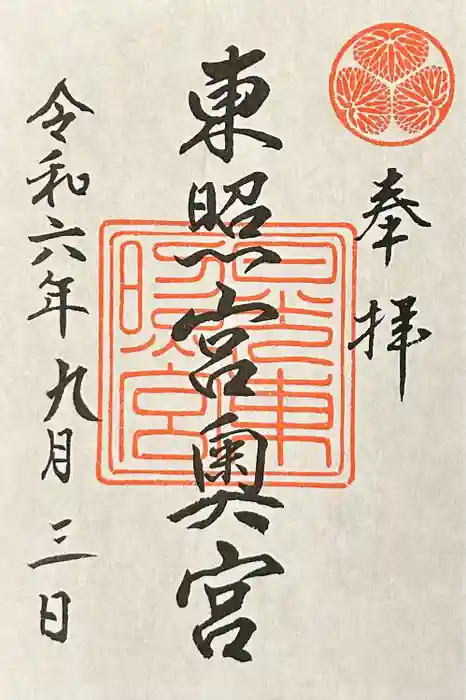 奉拝
東照宮奥宮
日光東照宮
令和六年九月三日